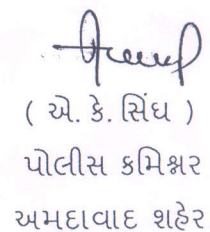 ( એ. કે. સિંઘ )
પોલીસ કમિશ્નર
અમદાવાદ શહેર